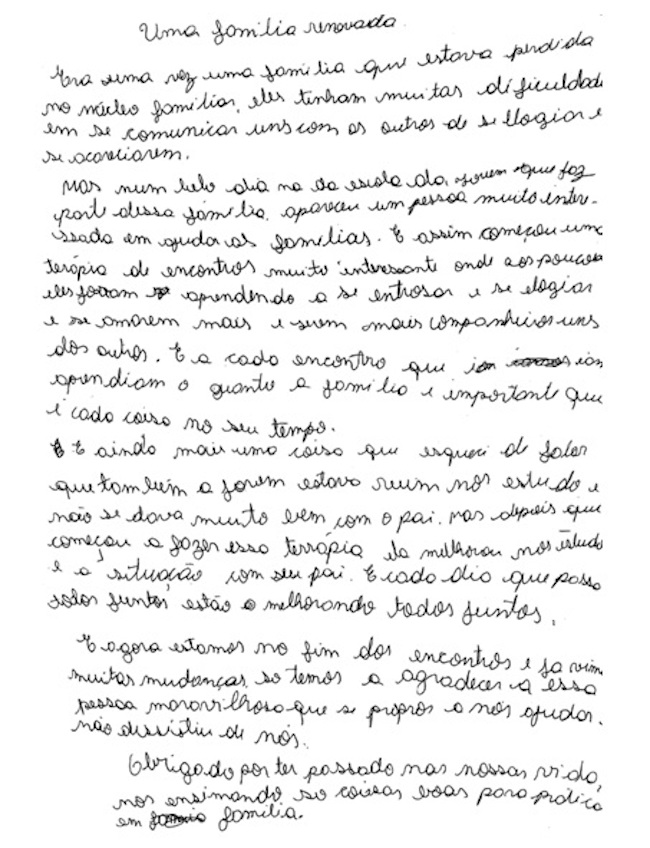 Uma familia renovada.
Era uma vez uma familia que estava perdida
no núcleo familiar, eles tinham muitas dificuldade
em se comunicar uns com os outros de se llogiar e
se acariciarem.
Mas num belo dia na da escola da jovem que faz
parti dessa família, apareceu um pessoa muito inter-
ssada em ajudar as famílias. E assim começou uma
terápia de encontros muito interessante onde aos poucos
eles foram aprendendo a se entrosar e se elogiar
e se amarem mais e serem mais companheiros uns
dos outros. E a cada encontro que iam
aprendiam o quanto a familia e importante que
é cada coisa no seu tempo.
E ainda mais uma coisa que esqueci de falar
que também a jovem estava ruim nos estudo e
não se dava muito bem com o pai. mas depois que
começou a fazer essa terrápia ela melhorou nos estudo
e a situação com seu pai. E cada dia que passa
todos juntos estão a melhorando todos juntos.
E agora estamos no fim dos encontros e ja vim
muitas mudanças, so temos a agradecer a essa
pessoa maravilhosa que se propros a nos ajudar.
não dissistiu de nós.
Obrigado por ter passado nas nossas vida,
nos ensinando so coisas boas para pratica
em familia.